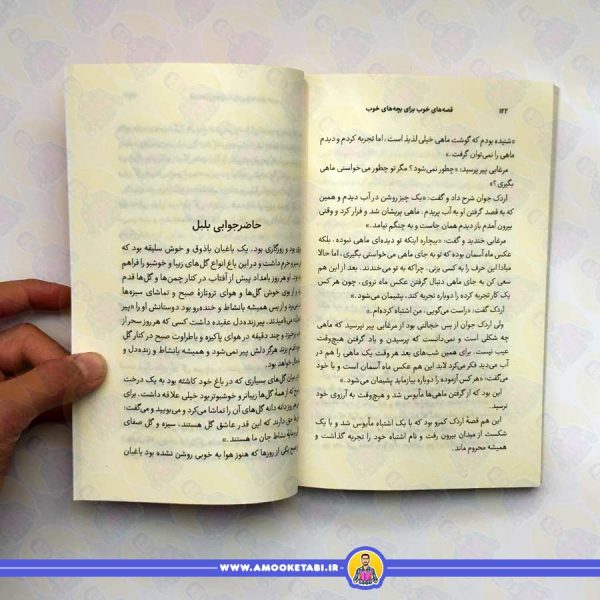 ۱۲۲
قصه‌های خوب برای بچه‌های خوب
«شنیده بودم که گوشت ماهی خیلی لذیذ است، اما تجربه کردم و دیدم
ماهی را نمی‌توان گرفت.»
مرغابی پیر پرسید: «چطور نمی‌شود؟ مگر تو چطور می‌خواستی ماهی
بگیری؟»
اردک جوان شرح داد و گفت: «یک چیز روشن در آب دیدم و همین
که به قصد گرفتن او به آب پریدم، ماهی پریشان شد و فرار کرد و وقتی
بیرون آمدم باز دیدم همان جاست و به چنگم نیامد.»
مرغابی خندید و گفت: «بیچاره اینکه تو دیده‌ای ماهی نبوده، بلکه
عکس ماه آسمان بوده که تو به جای ماهی می‌خواستی بگیری، اما حالا
مبادا این حرف را به کسی بزنی. چراکه به تو می‌خندند. بعد از این هم
سعی کن به جای ماهی دنبال گرفتن عکس ماه نروی، چون هر کس
یک کار تجربه کرده را دوباره تجربه کند، پشیمان می‌شود.»
اردک گفت: «راست می‌گویی، من اشتباه کرده‌ام.»
ولی اردک جوان از بس خجالتی بود از مرغابی پیر نپرسید که ماهی
چه شکلی است و نمی‌دانست که پرسیدن و یاد گرفتن هیچ‌وقت
عیب نیست. برای همین شب‌های بعد هر وقت یک ماهی را هم در
آب می‌دید فکر می‌کرد لابد این هم عکس ماه آسمان است و باز
می‌گفت: «هر کس آزموده را دوباره بیازماید پشیمان می‌شود.»
این بود که از گرفتن ماهی‌ها مأیوس شد و هیچ‌وقت به آرزوی خود
نرسید.
این هم قصهٔ اردک کمرو بود که با یک اشتباه مأیوس شد و با یک
شکست از میدان بیرون رفت و نام اشتباه خود را تجربه گذاشت و
همیشه محروم ماند.
حاضرجوابی بلبل
بود و روزگاری بود. یک باغبان باذوق و خوش سلیقه بود که
و خرم داشت و در این باغ انواع گل‌های زیبا و خوشبو را فراهم
بود. او هر روز بامداد پیش از آفتاب در کنار چمن‌ها و گل‌ها قدم
و از بوی خوش گل‌ها و هوای تروتازهٔ صبح و تماشای سبزه‌ها
می‌برد و از بس همیشه بانشاط و خنده‌رو بود دوستانش او را «پیر
می‌نامیدند. پیر زنده‌دل عقیده داشت کسی که هر روز سحر از
برخیزد و چند دقیقه در هوای پاکیزه و باطراوت صبح در کنار گل
قدم بزند هرگز دلش پیر نمی‌شود و همیشه بانشاط و زنده‌دل و
خواهد بود.
میان گل‌های بسیاری که در باغ خود کاشته بود به یک درخت
که از همهٔ گل‌ها زیباتر و خوشبوتر بود خیلی علاقه داشت. برای
هر روز دانه دانه گل‌های آن را تماشا می‌کرد و می‌بویید و می‌گفت:
حق دارند که این قدر عاشق گل هستند، سبزه و گل صفای
و مایهٔ نشاط جان ما هستند.»
صبح یکی از روزها که هنوز هوا به خوبی روشن نشده بود باغبان
WWW.AMOOKETABI.IR